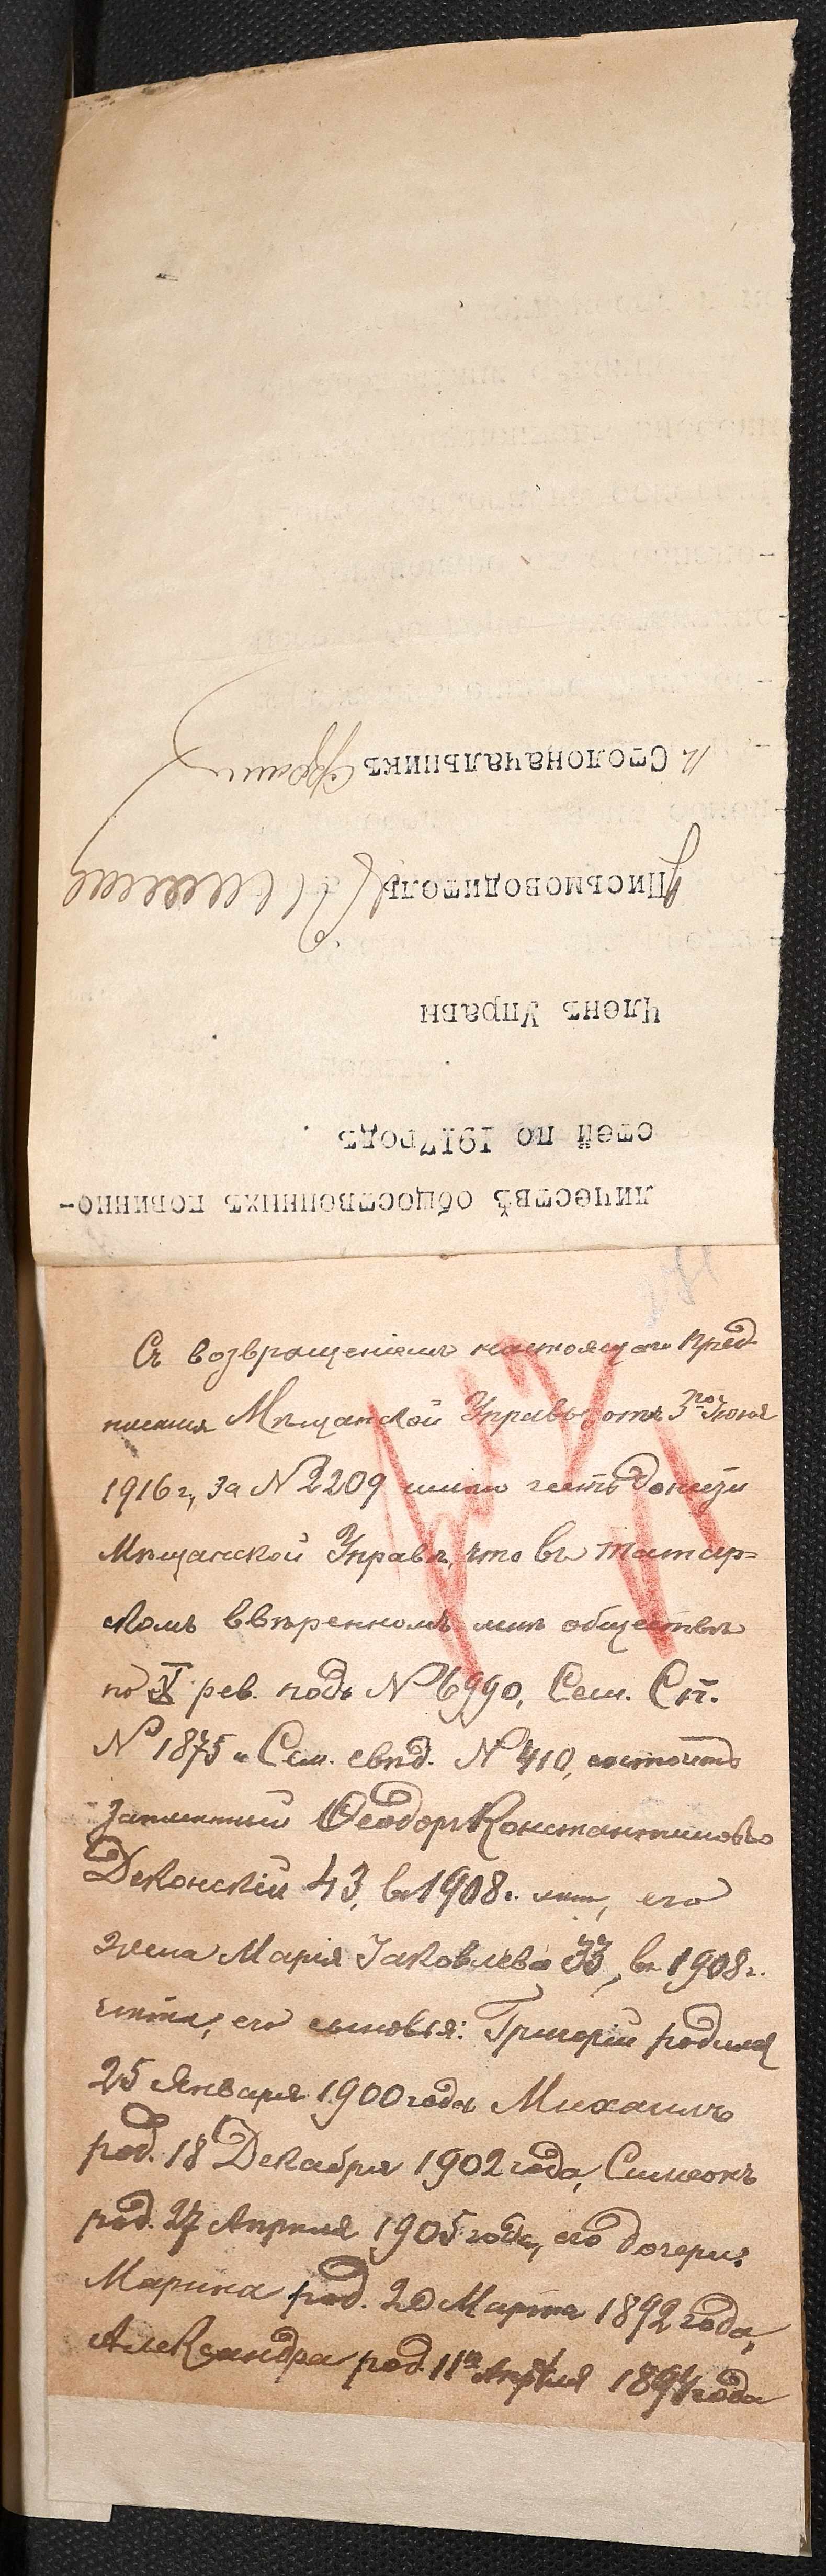 личествѣ общественныхъ повинно-
стей по 1917годъ.
Членъ Управы
Письмоводитель
Столоначальникъ
Съ возвращеніемъ настоящаго пред-
писанія Мѣщанской Управы, отъ 3го Іюня
1916 г, за № 2209 имѣю честь донести
Мѣщанской Управѣ, что въ татар=
скомъ ввѣренномъ мнѣ обществѣ
по X рев. подъ № 6990, Сем. Сп.
№ 1875 и Сем. свѣд. № 410, состоитъ
Ѳеодоръ Константиновъ
Деконскій 43, въ 1908 г. лѣтъ, его
жена Марія Іаковлева 33, въ 1908 г.
лѣтъ, его сыновья: Григорій родился
25 Января 1900 года Михаилъ
род. 18 Декабря 1902 года, Симеонъ
род. 27 Апрѣля 1905 года, его дочери:
Марина род. 20 Марта 1892 года,
Александра род 11го Апрѣля 1894 года